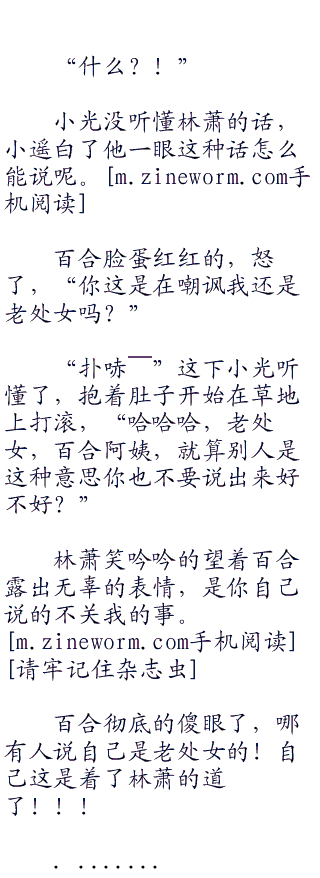 “什么？！”
小光没听懂林萧的话，
小遥白了他一眼这种话怎么
能说呢。[m.zineworm.com手
机阅读]
百合脸蛋红红的，怒
了，“你这是在嘲讽我还是
老处女吗？”
“扑哧——”这下小光听
懂了，抱着肚子开始在草地
上打滚，“哈哈哈，老处
女，百合阿姨，就算别人是
这种意思你也不要说出来好
不好？”
林萧笑吟吟的望着百合
露出无辜的表情，是你自己
说的不关我的事。
[m.zineworm.com手机阅读]
[请牢记住杂志虫]
百合彻底的傻眼了，哪
有人说自己是老处女的！自
己这是着了林萧的道
了！！！
．．．．．．．．